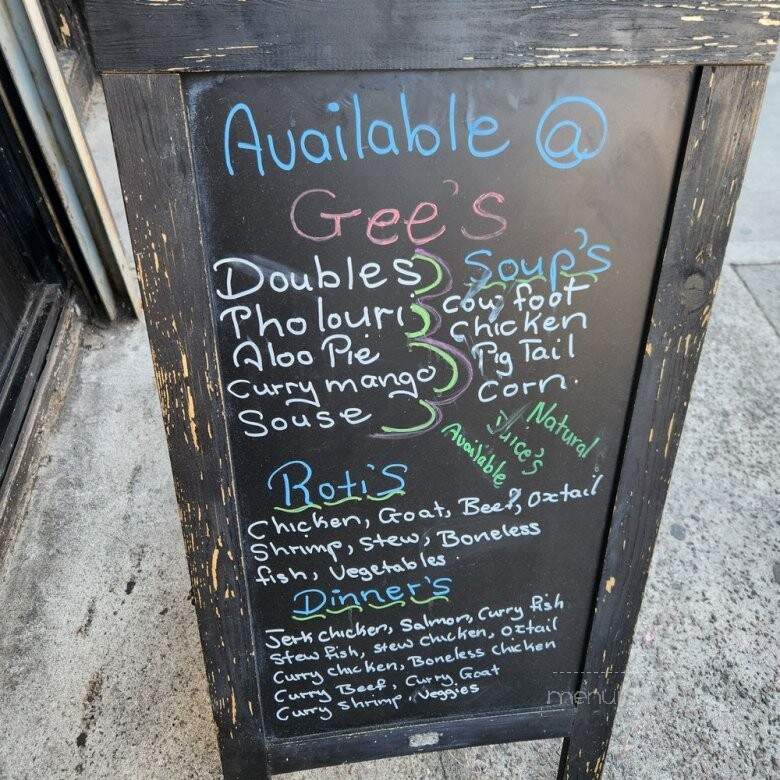 Available @
Gee's
Doubles
Pholouri
Aloo Pie
Curry mango
Souse
Soup's
Cow foot
Chicken
Pig Tail
Corn.
Natural
Juice's
Available
Roti's
Chicken, Goat, Beef, Oxtail
Shrimp, Stew, Boneless
fish, Vegetables
Dinner's
Jerk Chicken, Salmon, Curry fish
Stew fish, stew chicken, oxtail
Curry chicken, Boneless chicken
Curry Beef, Curry Goat
Curry shrimp, veggies
menu